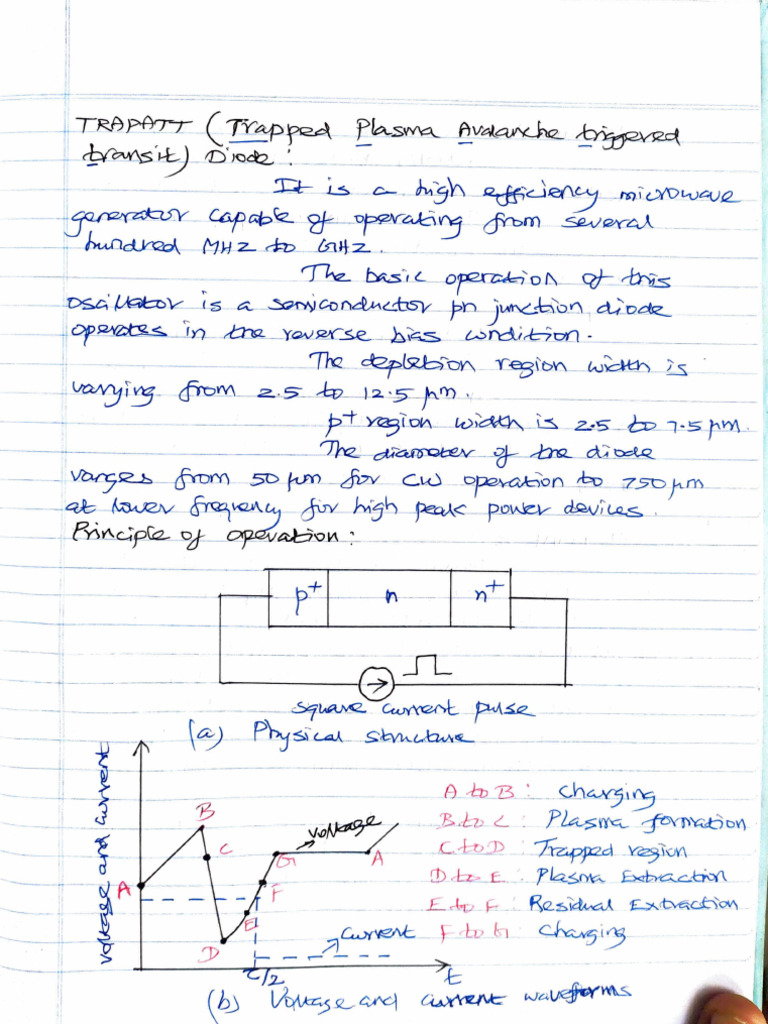 TRAPATT (Trapped Plasma Avalanche triggered
transit) Diode:
It is a high efficiency microwave
generator capable of operating from several
hundred MHz to GHz.
The basic operation of this
oscillator is a semiconductor pn junction diode
operates in the reverse bias condition.
The depletion region width is
varying from 2.5 to 12.5 μm.
p+ region width is 2.5 to 7.5 μm.
The diameter of the diode
ranges from 50 μm for CW operation to 750 μm
at lower frequency for high peak power devices.
Principle of operation:
p+ n n+
square current pulse
(a) Physical structure
voltage and current
A B C D E F G A
voltage
current
τ/2
t
A to B: Charging
B to C: Plasma formation
C to D: Trapped region
D to E: Plasma Extraction
E to F: Residual Extraction
F to G: Charging
(b) Voltage and current waveforms